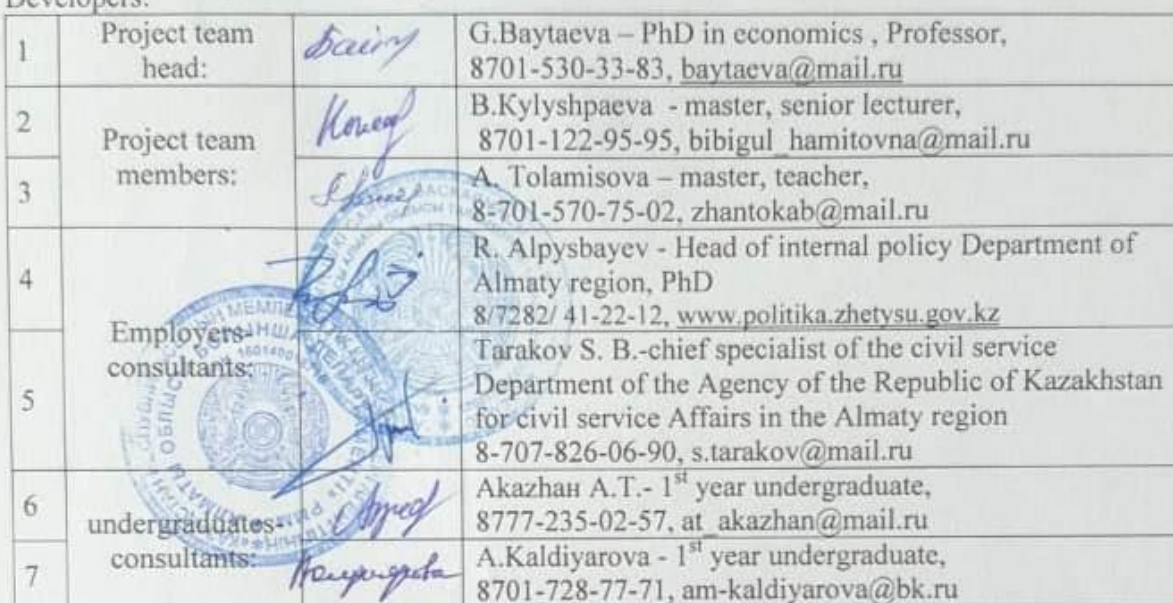 Developers:
1
Project team
head:
G.Baytaeva – PhD in economics , Professor,
8701-530-33-83, baytaeva@mail.ru
2
Project team
members:
B.Kylyshpaeva - master, senior lecturer,
8701-122-95-95, bibigul_hamitovna@mail.ru
3
A. Tolamisova – master, teacher,
8-701-570-75-02, zhantokab@mail.ru
4
Employers-
consultants:
R. Alpysbayev - Head of internal policy Department of
Almaty region, PhD
8/7282/ 41-22-12, www.politika.zhetysu.gov.kz
5
Tarakov S. B.-chief specialist of the civil service
Department of the Agency of the Republic of Kazakhstan
for civil service Affairs in the Almaty region
8-707-826-06-90, s.tarakov@mail.ru
6
undergraduates-
consultants:
Akazhан A.T.- 1st year undergraduate,
8777-235-02-57, at_akazhan@mail.ru
7
A.Kaldiyarova - 1st year undergraduate,
8701-728-77-71, am-kaldiyarova@bk.ru